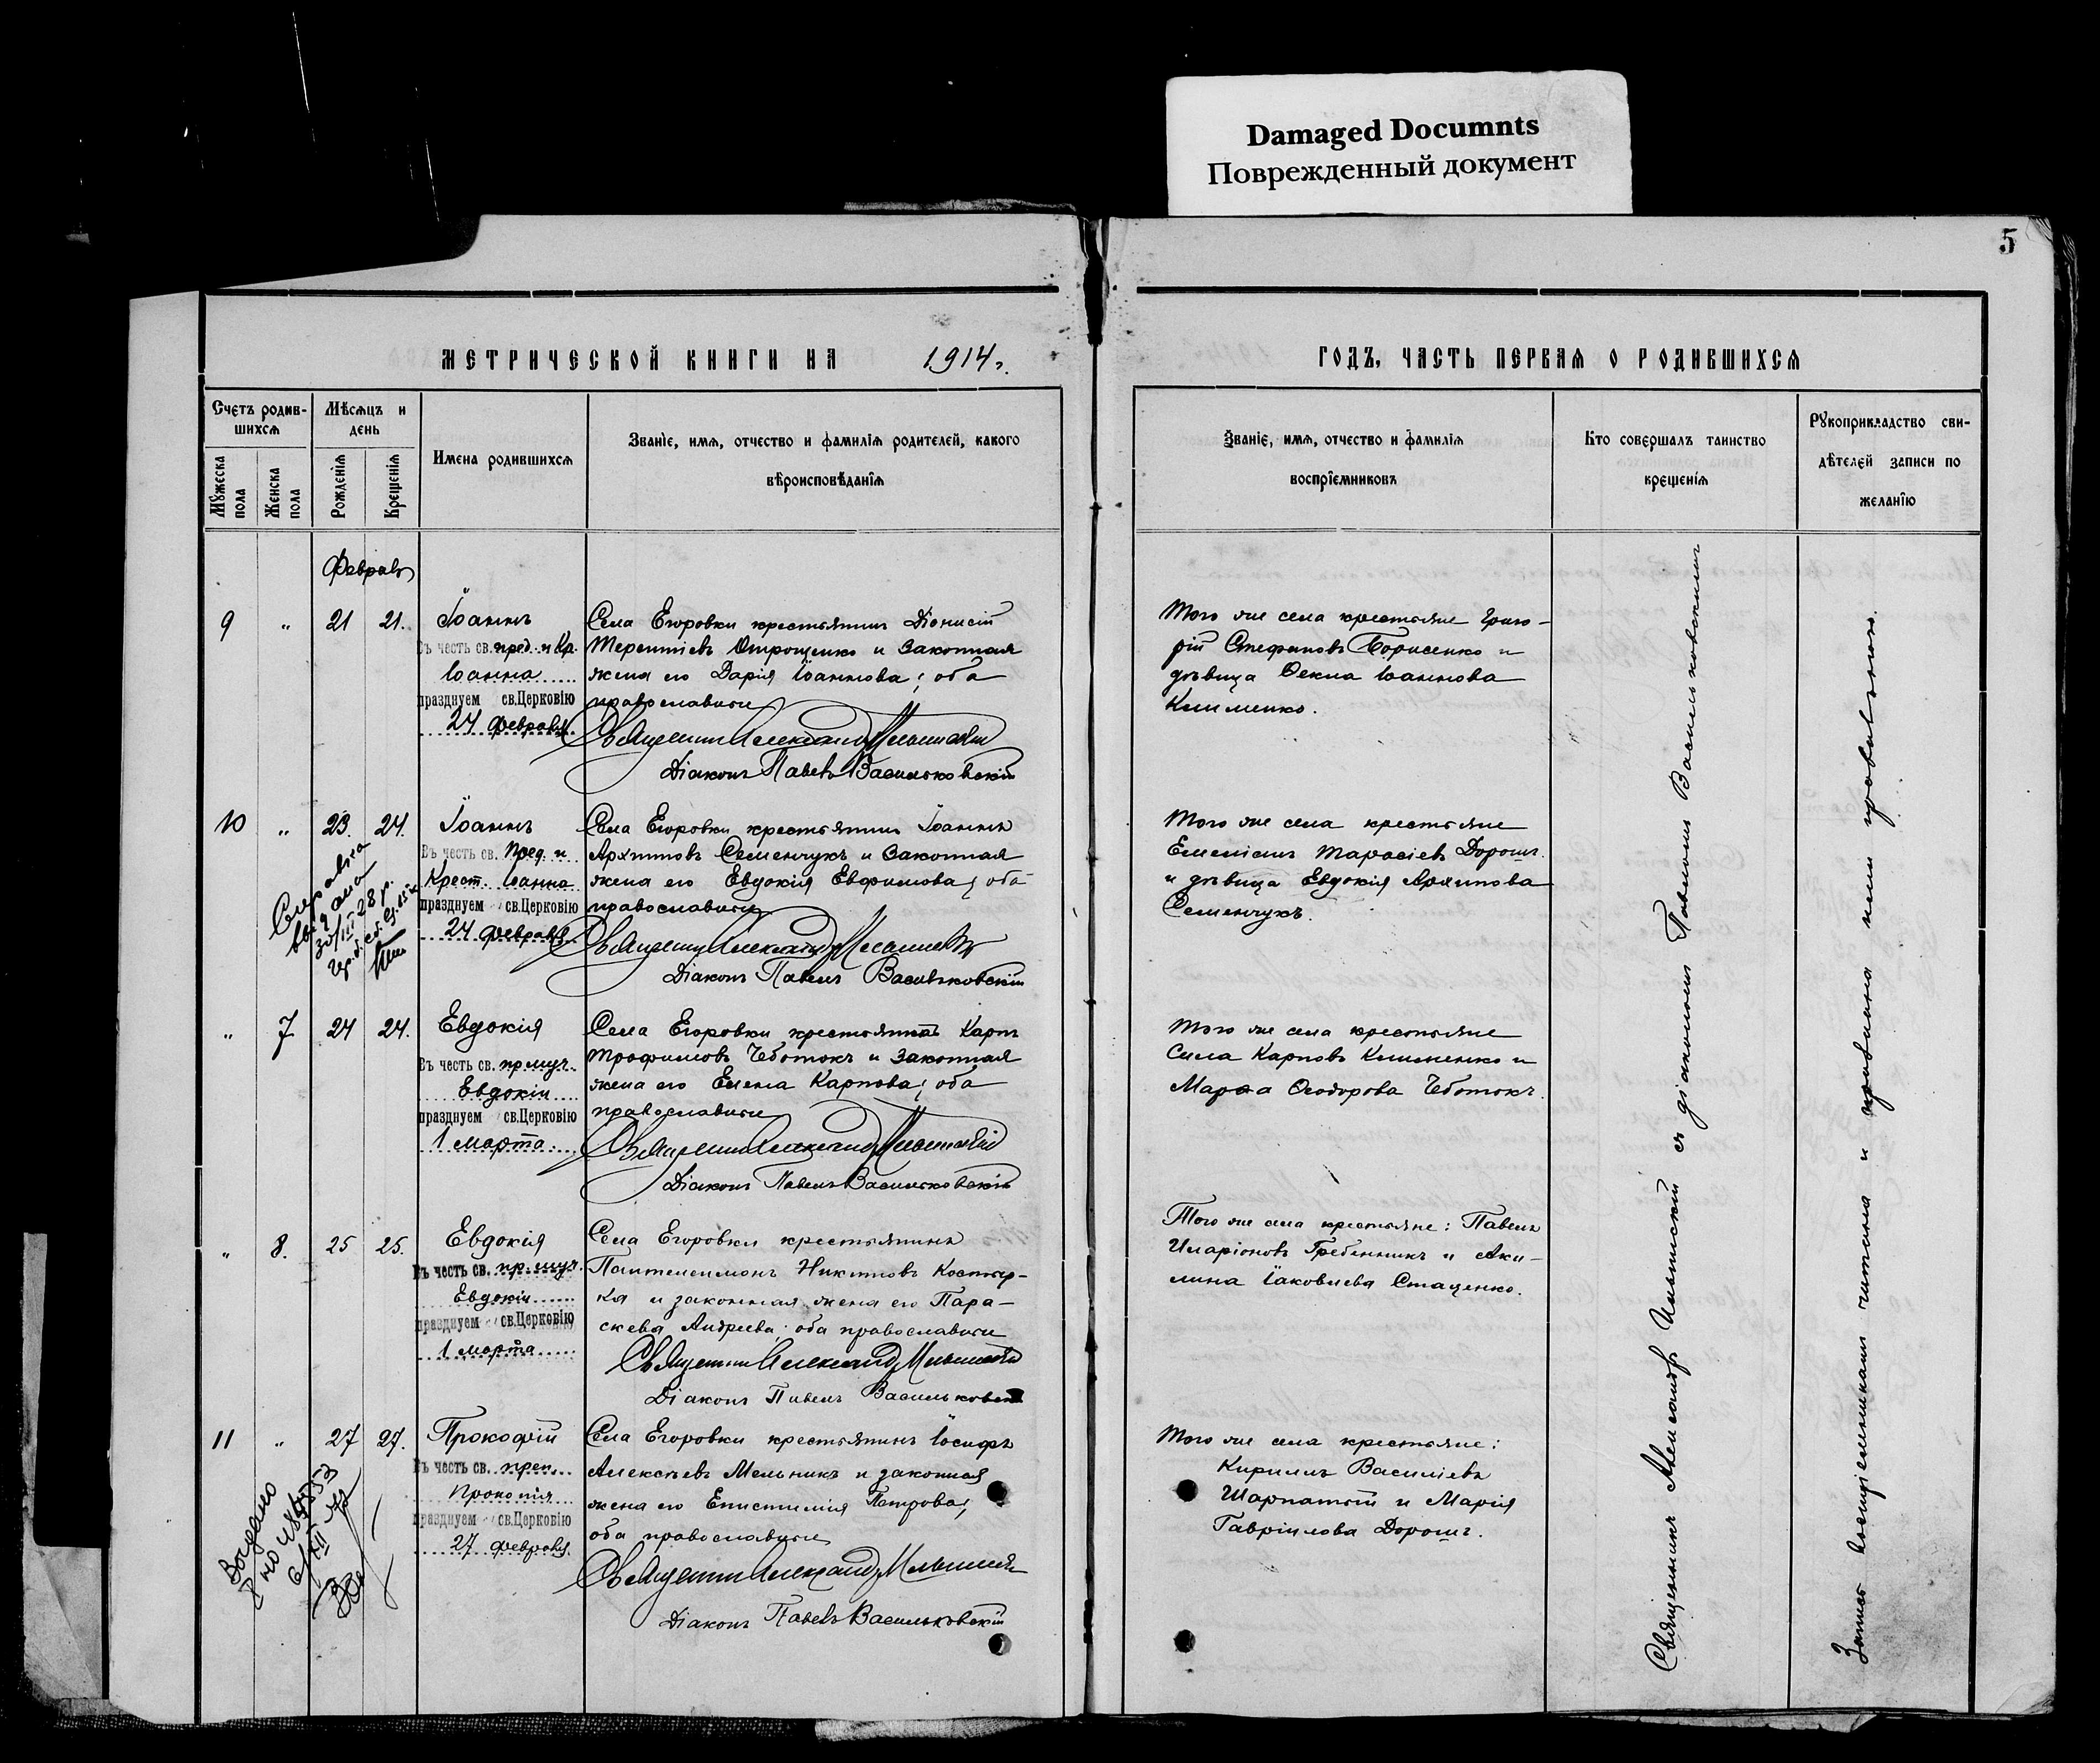 Damaged Documnts
Поврежденный документ
5
МЕТРИЧЕСКОЙ КНИГИ НА 1914 г.
ГОДЪ, ЧАСТЬ ПЕРВАЯ О РОДИВШИХСЯ
Счетъ родив-
шихся
Мѣсяцъ и
день
Мужеска пола
Женска пола
Рожденія
Крещенія
Имена родившихся
Званіе, имя, отчество и фамилія родителей, какого
вѣроисповѣданія
Званіе, имя, отчество и фамилія
воспріемниковъ
Кто совершалъ таинство
крещенія
Рукоприкладство сви-
дѣтелей записи по
желанію
Февраль
9 " 21 21.
Іоаннъ
Въ честь св. пред. и Кр.
Іоанна
празднуем св.Церковію
24 февраля
Села Егоровки крестьянинъ Діонисій
Терентіевъ Отрощенко и законная
жена его Дарія Іоаннова; оба
православные
Священникъ Александръ Ильинскій
Діаконъ Павелъ Васильковскій
Того же села крестьяне Григо-
рій Стефановъ Борисенко и
дѣвица Ѳекла Іоаннова
Клименко.
10 " 23. 24.
Іоаннъ
Въ честь св. Пред. и
Крест. Іоанна
празднуем св.Церковію
24 февраля
Справка
выдана
30/III 28 р.
Села Егоровки крестьянинъ Іоаннъ
Архиповъ Семенчукъ и законная
жена его Евдокія Евфимова; оба
православные
Священникъ Александръ Ильинскій
Діаконъ Павелъ Васильковскій
Того же села крестьяне
Емеліанъ Тарасіевъ Дорошъ
и дѣвица Евдокія Архипова
Семенчукъ.
" 7. 24 24.
Евдокія
Въ честь св. пр.муч.
Евдокіи
празднуем св.Церковію
1 марта.
Села Егоровки крестьянинъ Карпъ
Трофимовъ Чеботокъ и законная
жена его Елена Карпова; оба
православные
Священникъ Александръ Ильинскій
Діаконъ Павелъ Васильковскій
Того же села крестьяне
Сила Карповъ Клименко и
Марѳа Ѳеодорова Чеботокъ.
" 8. 25 25.
Евдокія
Въ честь св. пр.муч.
Евдокіи
празднуем св.Церковію
1 марта
Села Егоровки крестьянинъ
Пантелеимонъ Никитовъ Костыр-
ка и законная жена его Пара-
скева Андреева; оба православные
Священникъ Александръ Ильинскій
Діаконъ Павелъ Васильковскій
Того же села крестьяне: Павелъ
Иларіоновъ Гребенникъ и Аки-
лина Іаковлева Стаценко.
11 " 27 27.
Прокофій
Въ честь св. преп.
Прокопія
празднуем св.Церковію
27 февраля.
Выдано
Села Егоровки крестьянинъ Іосифъ
Алексѣевъ Мельникъ и законная
жена его Епистимія Петрова;
оба православные
Священникъ Александръ Ильинскій
Діаконъ Павелъ Васильковскій
Того же села крестьяне:
Кириллъ Василіевъ
Шарпатый и Марія
Гавріилова Дорошъ.
Священникъ Александръ Ильинскій съ діакономъ Павломъ Васильковскимъ
Запись воспріемниками читана и признана ими правильною.